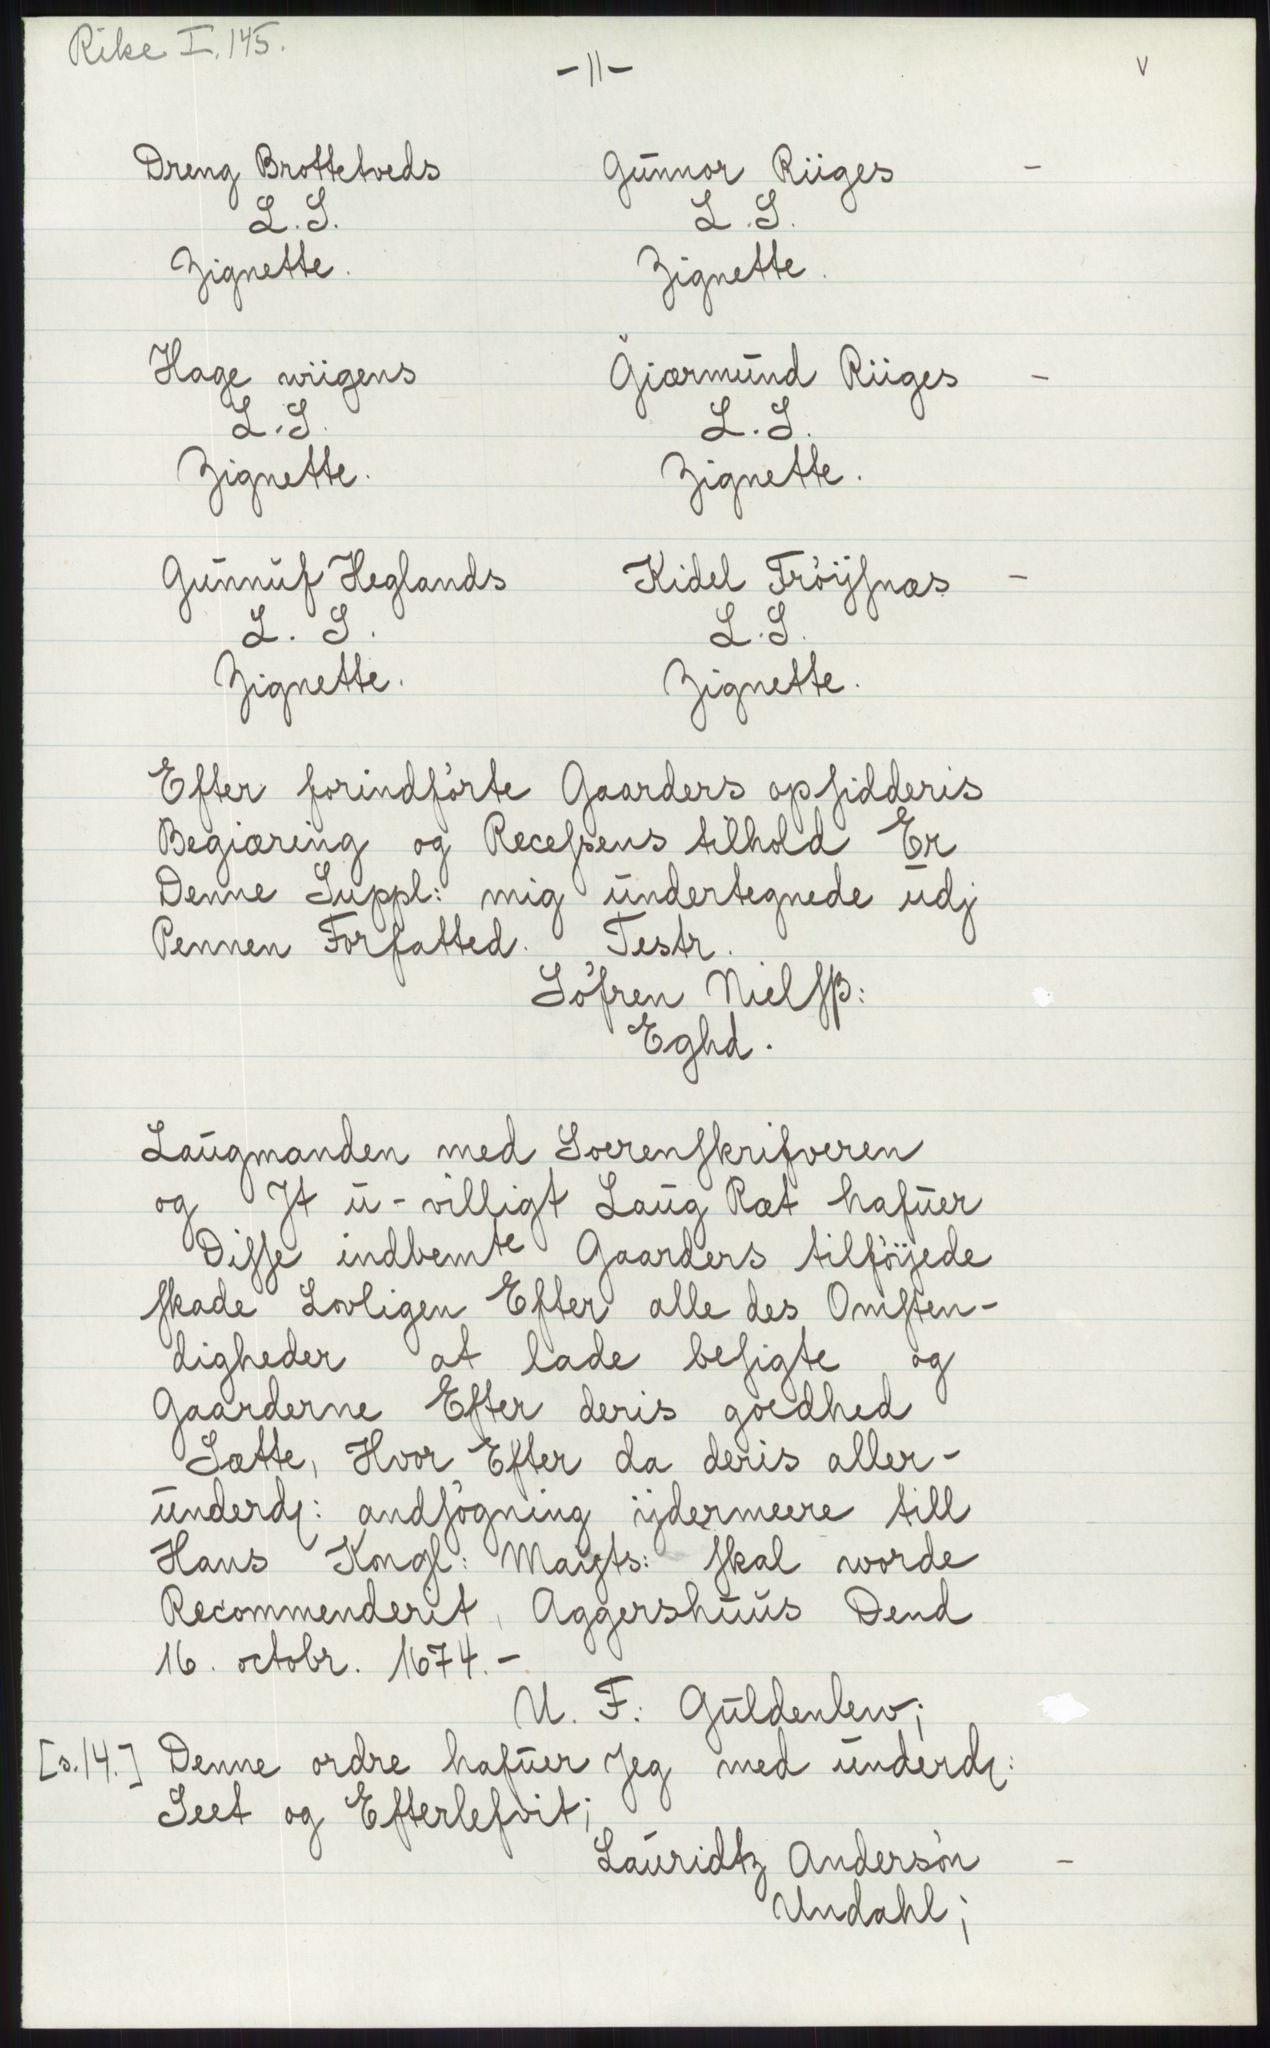 Rike I. 145.
-11-
v
Dreng Brottetveds Gunnor Riiges -
L.S. L.S.
Zignette. Zignette.
Hage wiigens Giærmund Riiges -
L.S. L.S.
Zignette. Zignette.
Gunnuf Heglands Kidel Fröijsnæs -
L. S. L.S.
Zignette. Zignette.
Efter forindförte Gaarders opsidderis
Begiæring og Recessens tilhold Er
Denne Suppl: mig undertegnede udj
Pennen Forfatted. Testr.
Söfren Nielsß:
Eghd.
Laugmanden med Soerenskrifveren
og Jt u-villigt Laug Ræt hafuer
Disse indbemte Gaarders tilföijede
skade Lovligen Efter alle des Omsten-
digheder at lade besigte og
Gaarderne Efter deris goedhed
Sætte, Hvor Efter da deris aller-
underd: andsögning ijdermeere till
Hans Kongl: Mayts: skal worde
Recommenderit, Aggershuus Dend
16. octobr. 1674.-
U. F: Guldenlew;
[s.14.] Denne ordre hafuer Jeg med underd:
Seet og Efterlefvit;
Lauridtz Andersön -
Undahl;